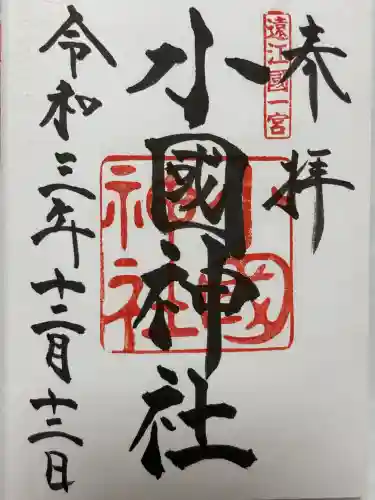 奉拝
遠江國一宮
小國神社
小國神社
令和三年十二月十三日